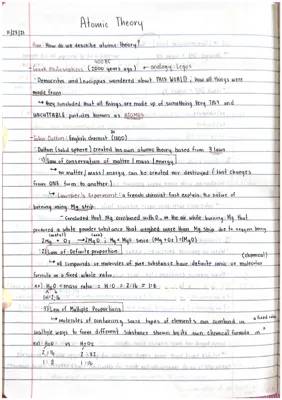 Atomic Theory
How do we describe atomic theory?
400 BC
Greek Philosophers (2500 years ago)
Democritus and Leucippus wondered about THIS WORLD ; how all things were
made from
↳ they concluded that all things are made up of something very TINY and
UNCUTTABLE particles known as ATOMOS
John Dalton : English chemist (1800)
Dalton (solid sphere) created his own atomic theory based from 3 laws
1) Law of conservation of matter / mass / energy
↳ no matter / mass / energy can be created nor destroyed (but changes
from ONE form to another)
↳ Lavoisier's Experiment : a french chemist that explain the nature of
burning using Mg strip
- Concluded that Mg combined with O₂ in the air while burning Mg that
produced a white powder substance that weighed more than Mg strip due to oxygen being
2Mg + O₂ → 2MgO
2) Law of Definite proportion
(chemical)
↳ all compounds or molecules of pure substance have definite ionic or molecular
formula in a fixed whole ratio
ex: H₂O = mass ratio = H:O = 2:16 = 1:8
3) Law of Multiple Proportions
↳ molecules of containing same types of elements can combined in
a fixed ratio
multiple ways to form different substance shown by its own chemical formula in
ex: H₂O vs. H₂O₂
2:16 2:32
1:8 1:16